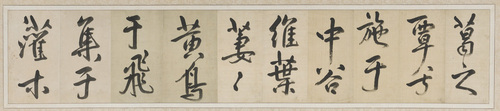 葛之
覃兮
施于
中谷
維葉
萋〻
黃鳥
于飛
集于
灌木